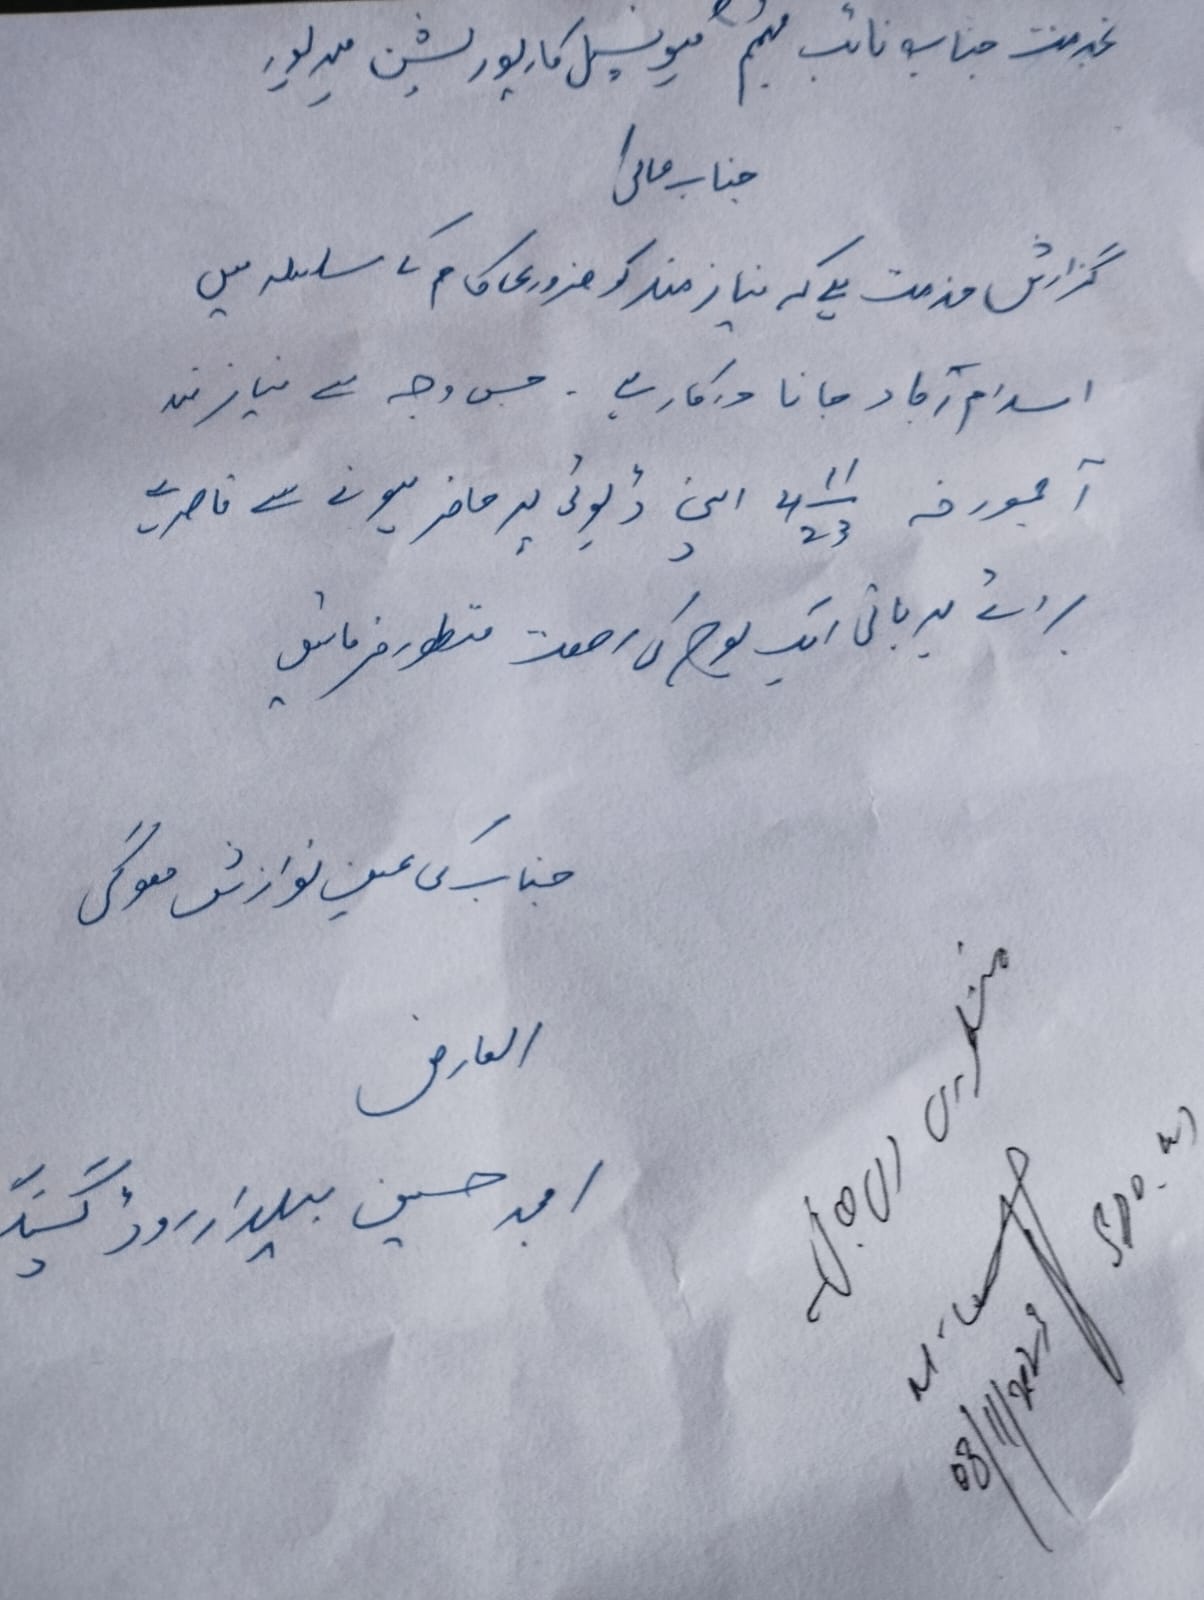 بخدمت جناب نائب مہتمم میونسپل کارپوریشن میرپور
جناب عالی!
گزارش خدمت ہے کہ نیاز مند کو ضروری کام کے سلسلہ میں
اسلام آباد جانا درکار ہے ۔ جس وجہ سے نیاز مند
آج مورخہ 11/23 اپنی ڈیوٹی پر حاضر ہونے سے قاصر ہے
برائے مہربانی ایک یوم کی رخصت منظور فرمائیں
جناب کی عین نوازش ہوگی
العارض
امجد حسین بیلدار روڈ گینگ
SDO
08/11/2023